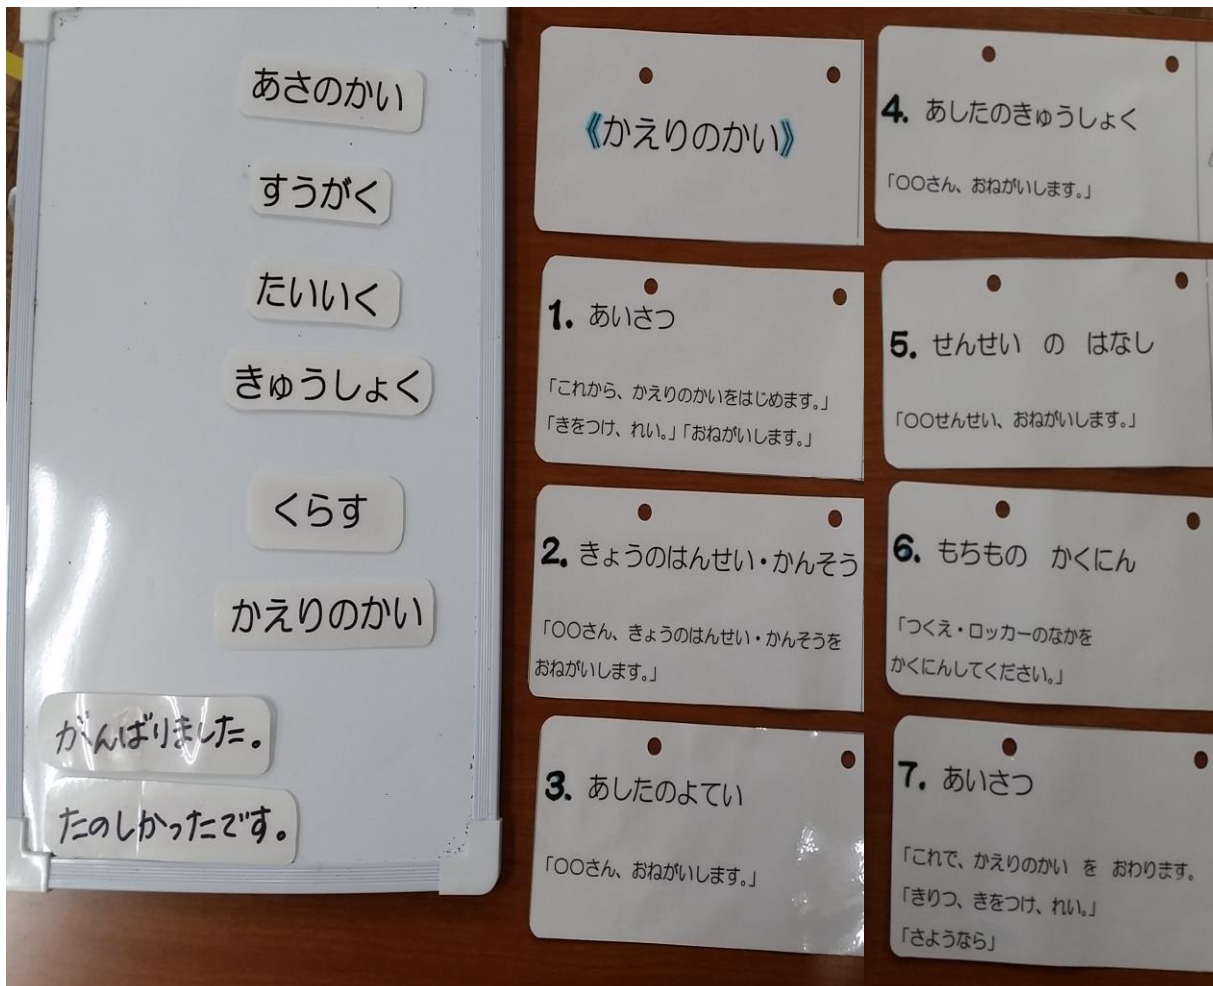 あさのかい
すうがく
たいいく
きゅうしょく
くらす
かえりのかい
がんばりました。
たのしかったです。
《かえりのかい》
1. あいさつ
「これから、かえりのかいをはじめます。」
「きをつけ、れい。」「おねがいします。」
2. きょうのはんせい・かんそう
「〇〇さん、きょうのはんせい・かんそうを
おねがいします。」
3. あしたのよてい
「〇〇さん、おねがいします。」
4. あしたのきゅうしょく
「〇〇さん、おねがいします。」
5. せんせい の はなし
「〇〇せんせい、おねがいします。」
6. もちもの かくにん
「つくえ・ロッカーのなかを
かくにんしてください。」
7. あいさつ
「これで、かえりのかい を おわります。
「きりつ、きをつけ、れい。」
「さようなら」